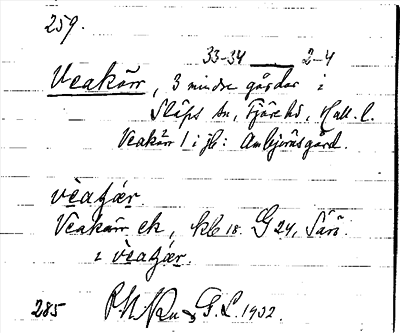 259.
33-34 2-4
Veakärr, 3 mindre gårdar i
Släps sn, Fjäre hd, Hall. l.
Veakärr 1 i jb: Anbjörnsgård.
veatjær
Veakärr ek, kbl 18. G 24, Särö
i veatjær.
285 G. L. 1932.